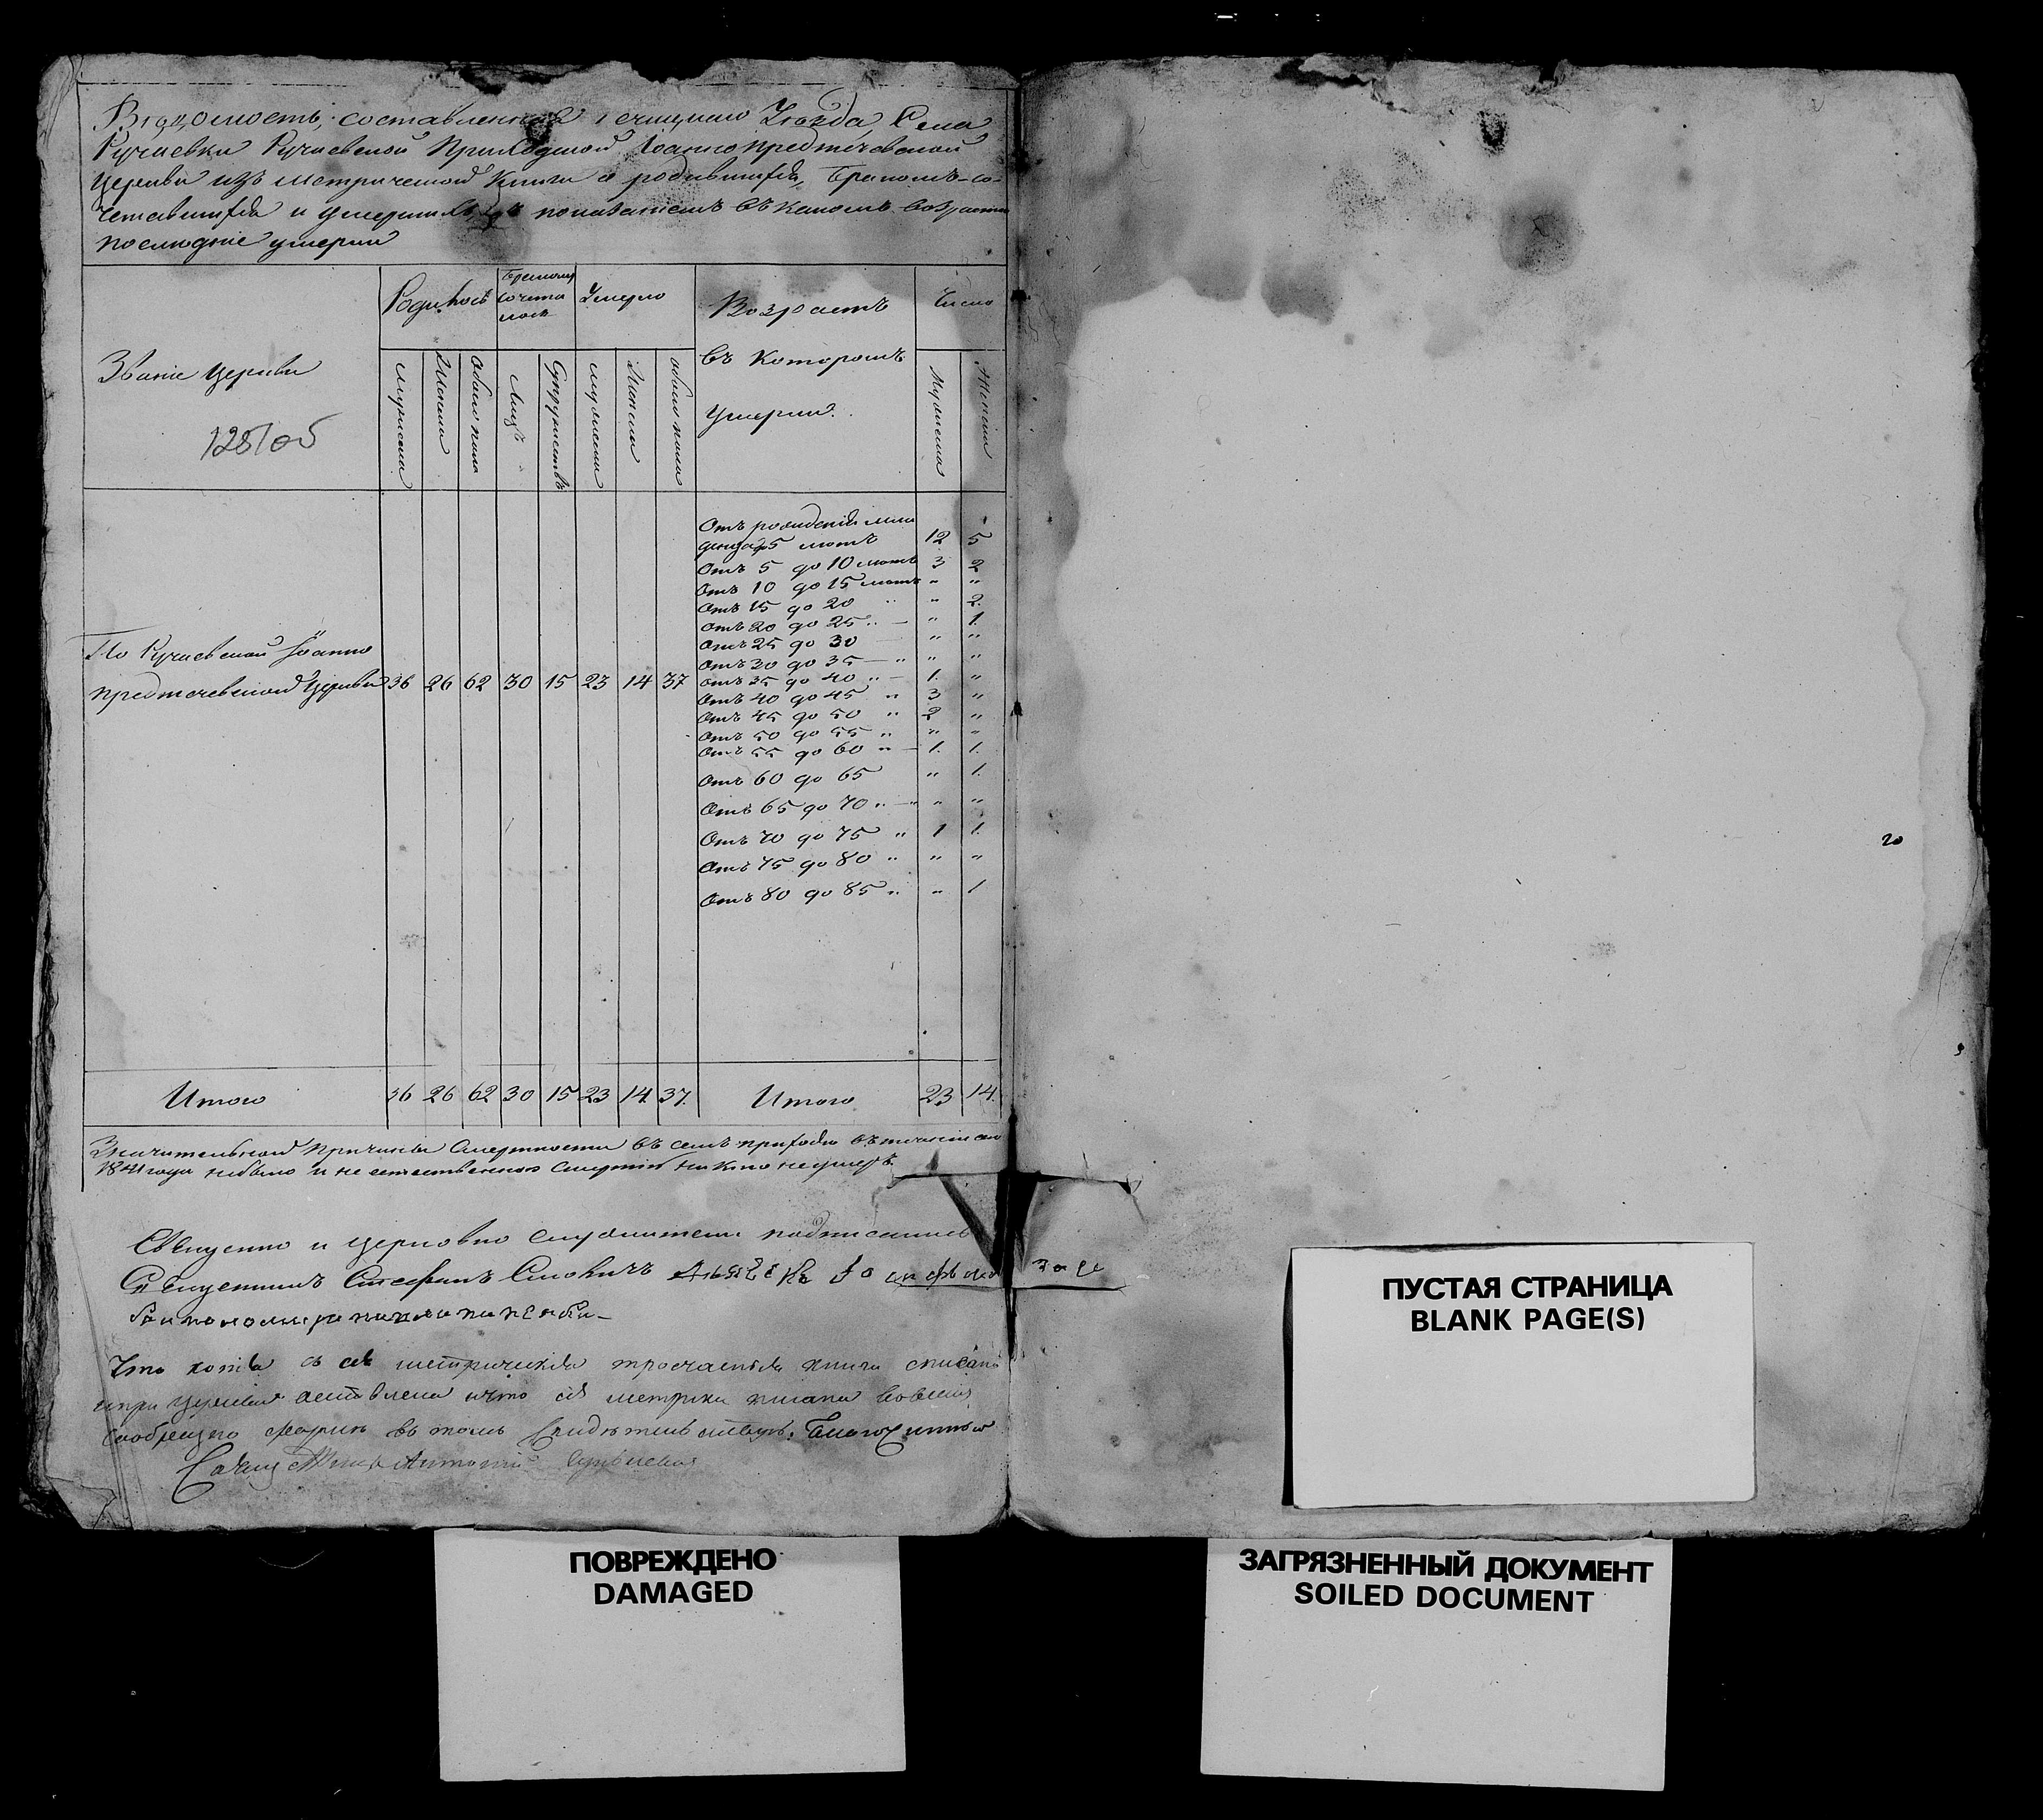 Вѣдомость, составленная Уѣзда, Села
Ручаевки Ручаевской Приходской Іоанно предтечевской
Церкви изъ метрической Книги о родившихся, Бракомъ-со-
четавшихся и умершихъ, съ показаніемъ въ какомъ возрасте
последніе умерли
Званіе Церкви
Родилось
Бракомъ сочета лось
Умерло
Возрастъ
въ Которомъ
Умерли.
Число
Мужеска
Женска
Обоего пола
Лицъ
Супружествъ
Мужеска
Женска
обоего пола
Мужеска
Женска
128 об
Отъ рожденія мла
денца до 5 летъ 12 5
Отъ 5 до 10 летъ 3 2
Отъ 10 до 15 летъ " "
Отъ 15 до 20 " " 2.
Отъ 20 до 25 " — " 1.
Отъ 25 до 30 — " "
Отъ 30 до 35 — " " "
Отъ 35 до 40 " — 1. "
Отъ 40 до 45 " 3 "
Отъ 45 до 50 " 2 "
Отъ 50 до 55 " " "
Отъ 55 до 60 " — 1. 1.
Отъ 60 до 65 " 1.
Отъ 65 до 70 " — " " "
Отъ 70 до 75 " 1 1.
Отъ 75 до 80 " " "
Отъ 80 до 85 " " 1
По Ручаевской Іоанно
предтечевской Церкви 36 26 62 30 15 23 14 37
Итого 36 26 62 30 15 23 14. 37. Итого 23 14.
Значительной Причины Смертности въ семъ приходе въ теченіи сего
1841 года небыло и не естественною Смертію никто неумеръ
Священно и церковно служители подписались
Священникъ Стефанъ
Что копія съ сей метрическія книга списана
и при Церкви оставлена и что сія метрика писана
въ томъ Благочинный
Священникъ Антоній
20
ПУСТАЯ СТРАНИЦА
BLANK PAGE(S)
ПОВРЕЖДЕНО
DAMAGED
ЗАГРЯЗНЕННЫЙ ДОКУМЕНТ
SOILED DOCUMENT